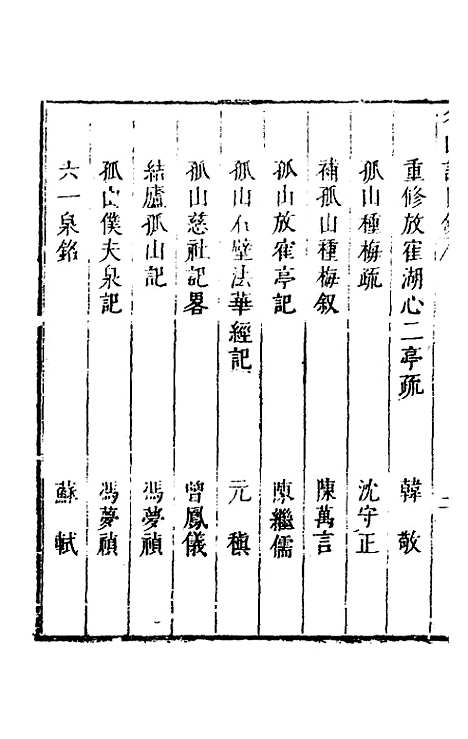 重修放寉湖心二亭疏 韓敬
孤山種梅疏 沈守正
補孤山種梅叙 陳萬言
孤山放寉亭記 陳繼儒
孤山石壁法華經記 元稹
孤山慈社記畧 曾鳳儀
結廬孤山記 馮夢禎
孤山僕夫泉記 馮夢禎
六一泉銘 蘇軾